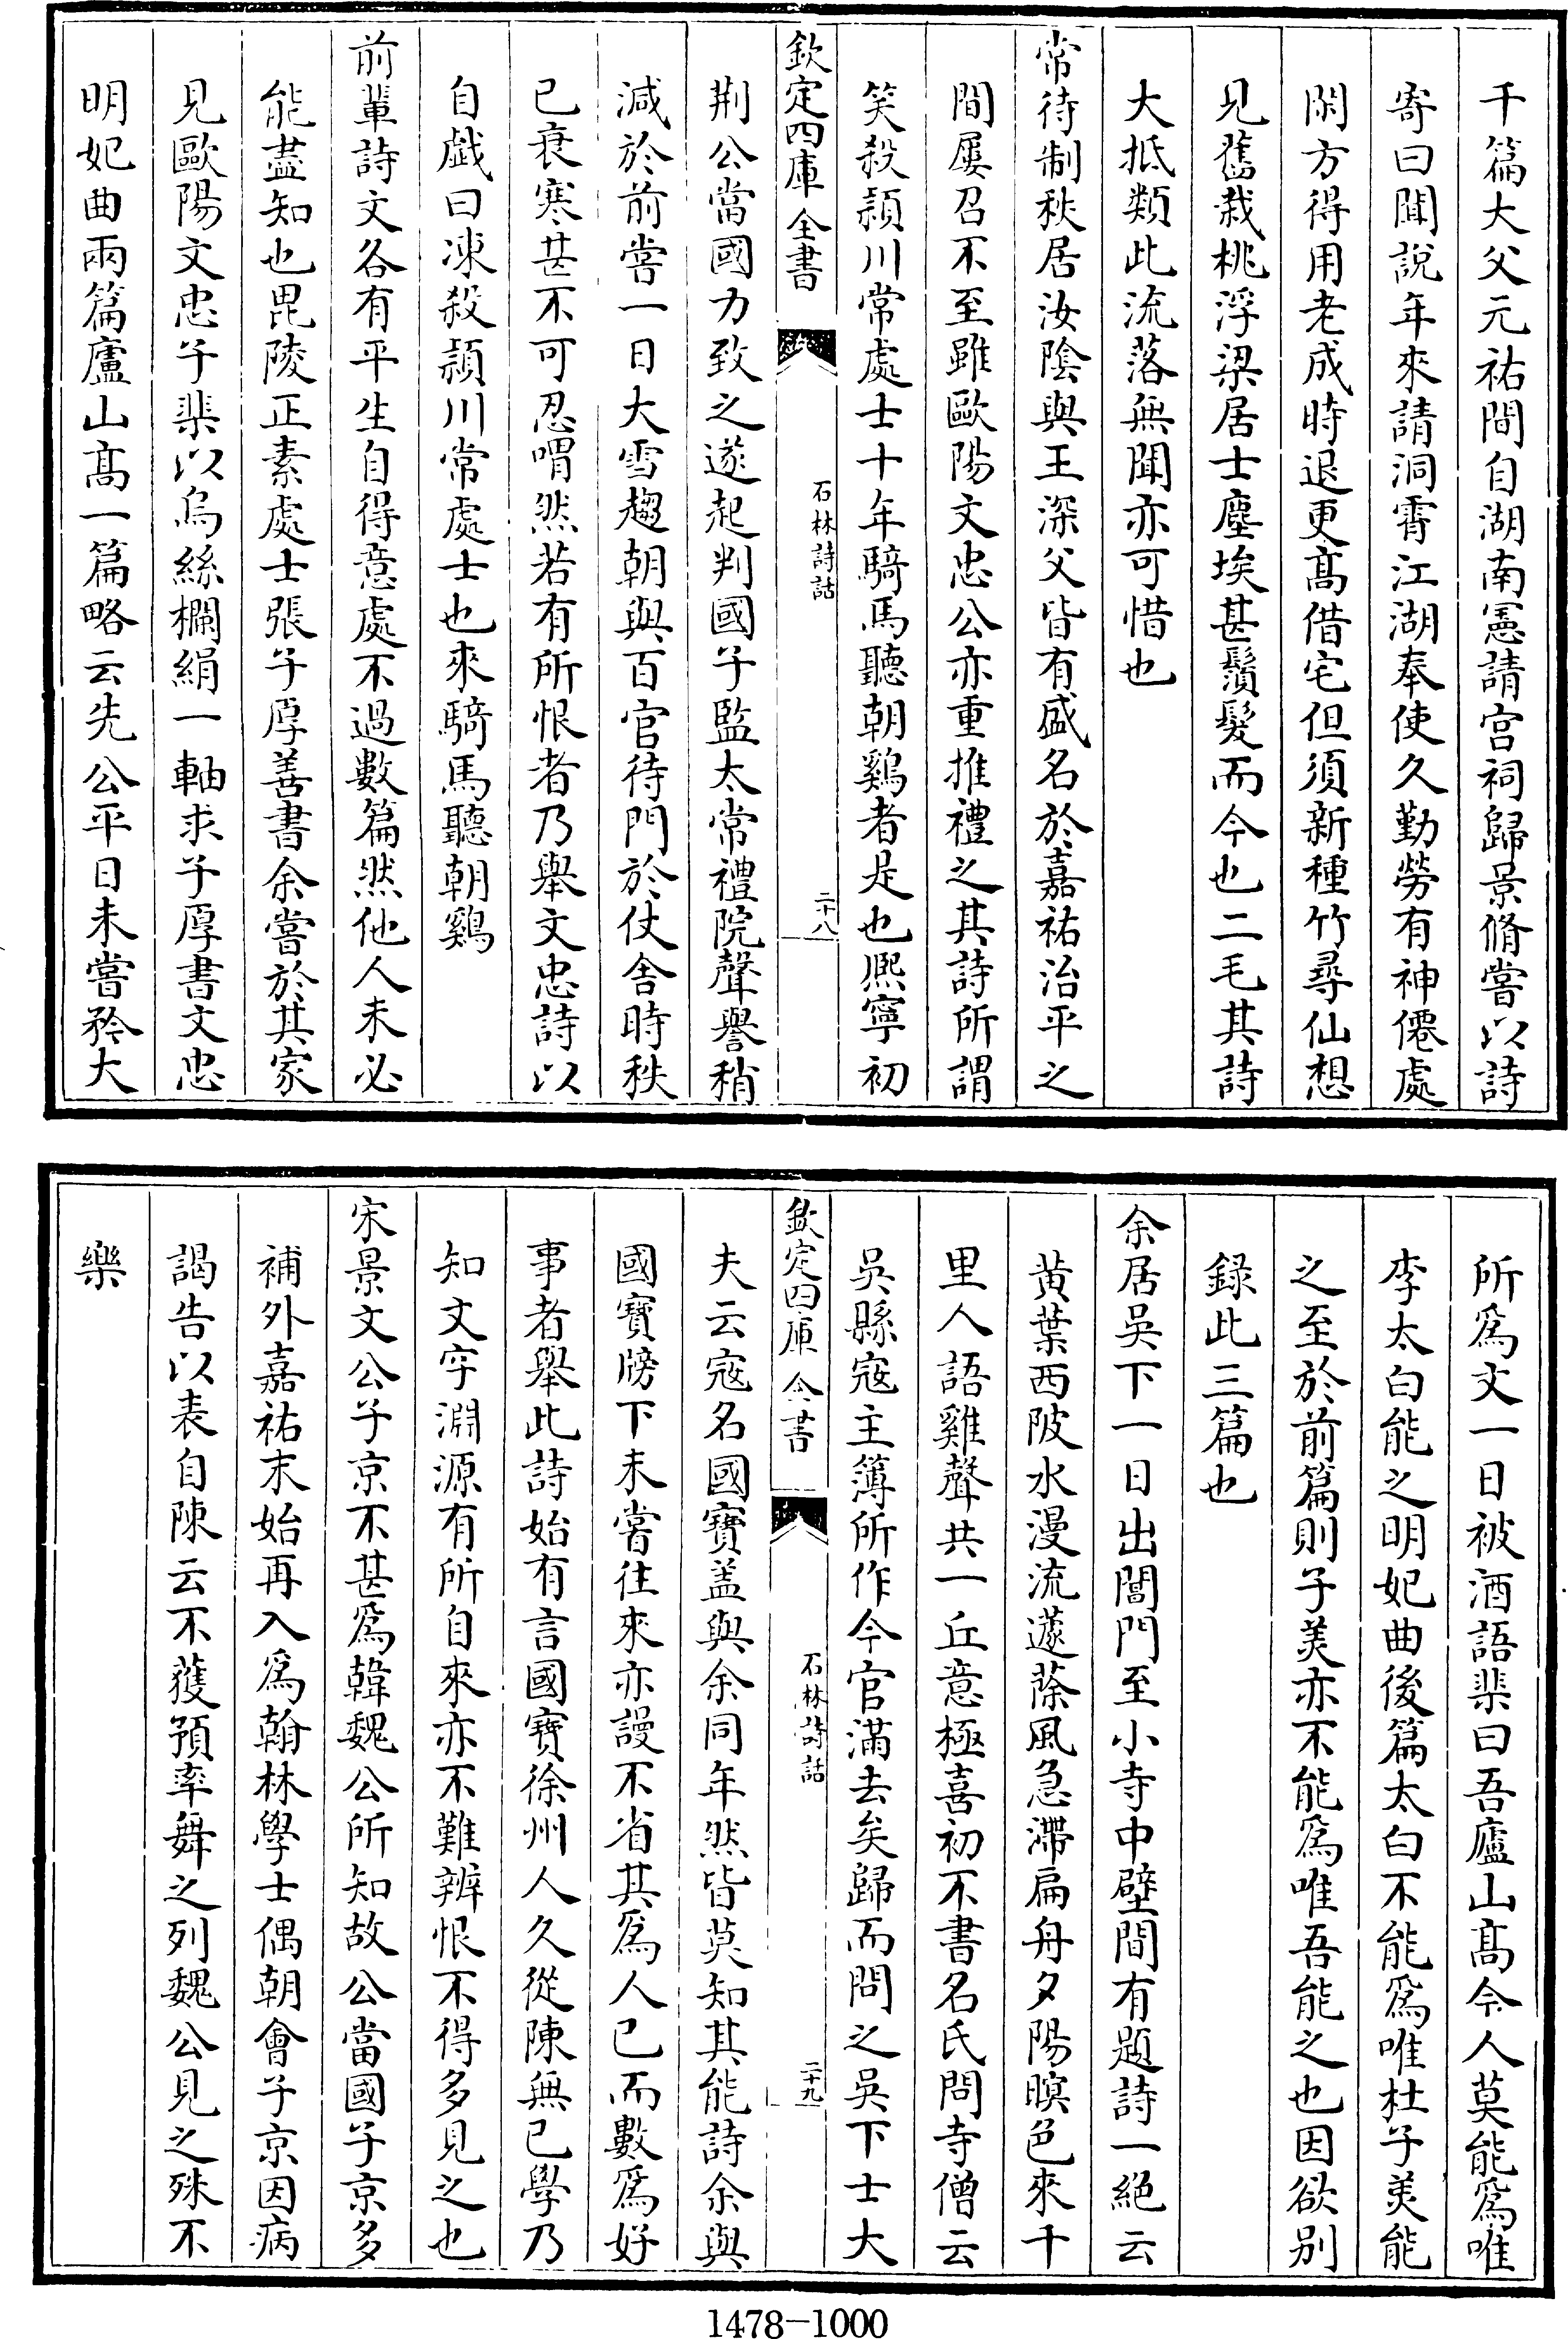 千篇大父元祐間自湖南憲請宫祠歸景脩嘗以詩
寄曰聞說年來請洞霄江湖奉使久勤勞有神僊處
閑方得用老成時退更髙借宅但須新種竹尋仙想
見舊栽桃浮梁居士塵埃甚鬚髮而今也二毛其詩
大抵類此流落無聞亦可惜也
常待制秩居汝陰與王深父皆有盛名於嘉祐治平之
間屢召不至雖歐陽文忠公亦重推禮之其詩所謂
笑殺潁川常處士十年騎馬聽朝鷄者是也熈寧初
欽定四庫全書
石林詩話
二十八
荆公當國力致之遂起判國子監太常禮院聲譽稍
減於前嘗一日大雪趨朝與百官待門於仗舍時秩
已衰寒甚不可忍喟然若有所恨者乃舉文忠詩以
自戯曰凍殺潁川常處士也來騎馬聽朝鷄
前軰詩文各有平生自得意處不過數篇然他人未必
能盡知也毘陵正素處士張子厚善書余嘗於其家
見歐陽文忠子棐以烏絲欄絹一軸求子厚書文忠
明妃曲兩篇廬山髙一篇略云先公平日未嘗矜大
所爲文一日被酒語棐曰吾廬山髙今人莫能爲唯
李太白能之明妃曲後篇太白不能爲唯杜子美能
之至於前篇則子美亦不能爲唯吾能之也因欲别
録此三篇也
余居吳下一日出閶門至小寺中壁間有題詩一絕云
黄葉西陂水漫流蘧蒢風急滯扁舟夕陽暝色來千
里人語雞聲共一丘意極喜初不書名氏問寺僧云
吳縣宼主簿所作今官滿去矣歸而問之吳下士大
欽定四庫全書
石林詩話
二十九
夫云宼名國寶盖與余同年然皆莫知其能詩余與
國寶牓下未嘗往來亦謾不省其爲人已而數爲好
事者舉此詩始有言國寶徐州人久從陳無已學乃
知文字淵源有所自來亦不難辨恨不得多見之也
宋景文公子京不甚爲韓魏公所知故公當國子京多
補外嘉祐末始再入爲翰林學士偶朝會子京因病
謁告以表自陳云不獲預率舞之列魏公見之殊不
樂
1478-1000